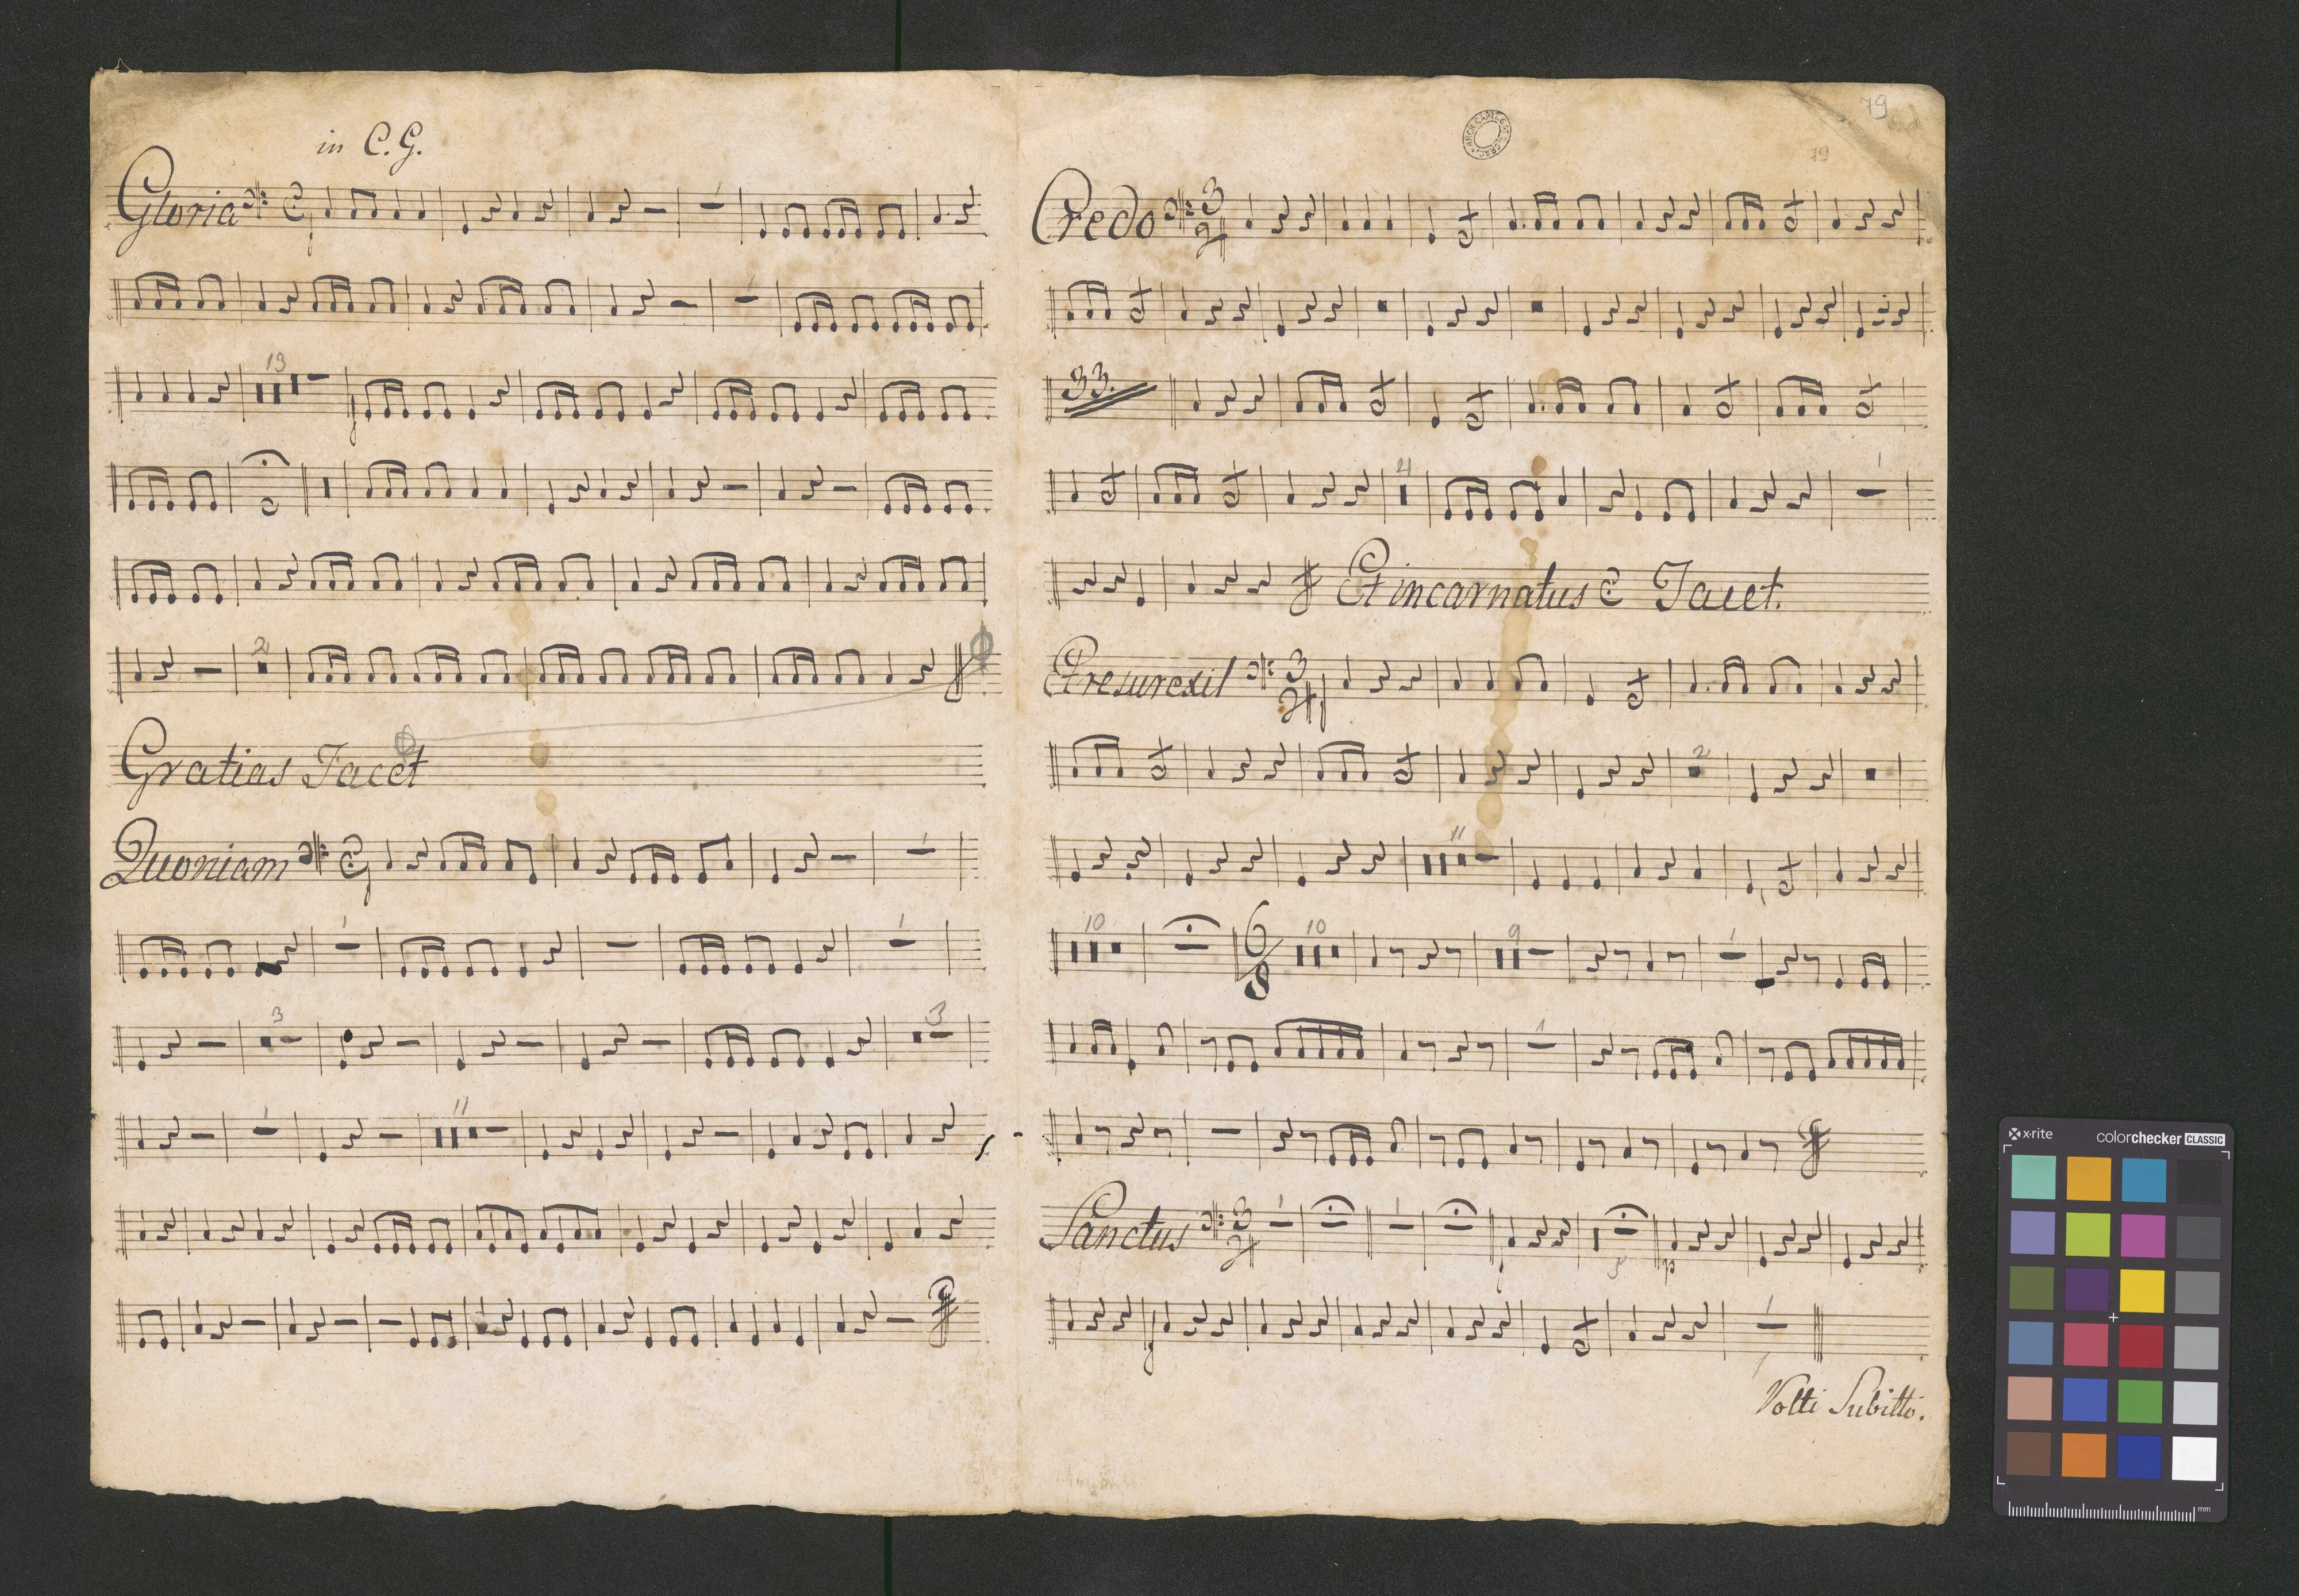 in C. G.
Gloria
1
1
13
2
Gratias Tacet
Quoniam
1
1
1
3
3
1
11
79
79
Credo 3
33.
4
1
Et incarnatus Tacet.
Et resurexit 3
2
11
10
6/8 10
9
1
1
Sanctus 3
1
1
f
p
1
Volti Subitto.
x-rite
colorchecker CLASSIC
mm